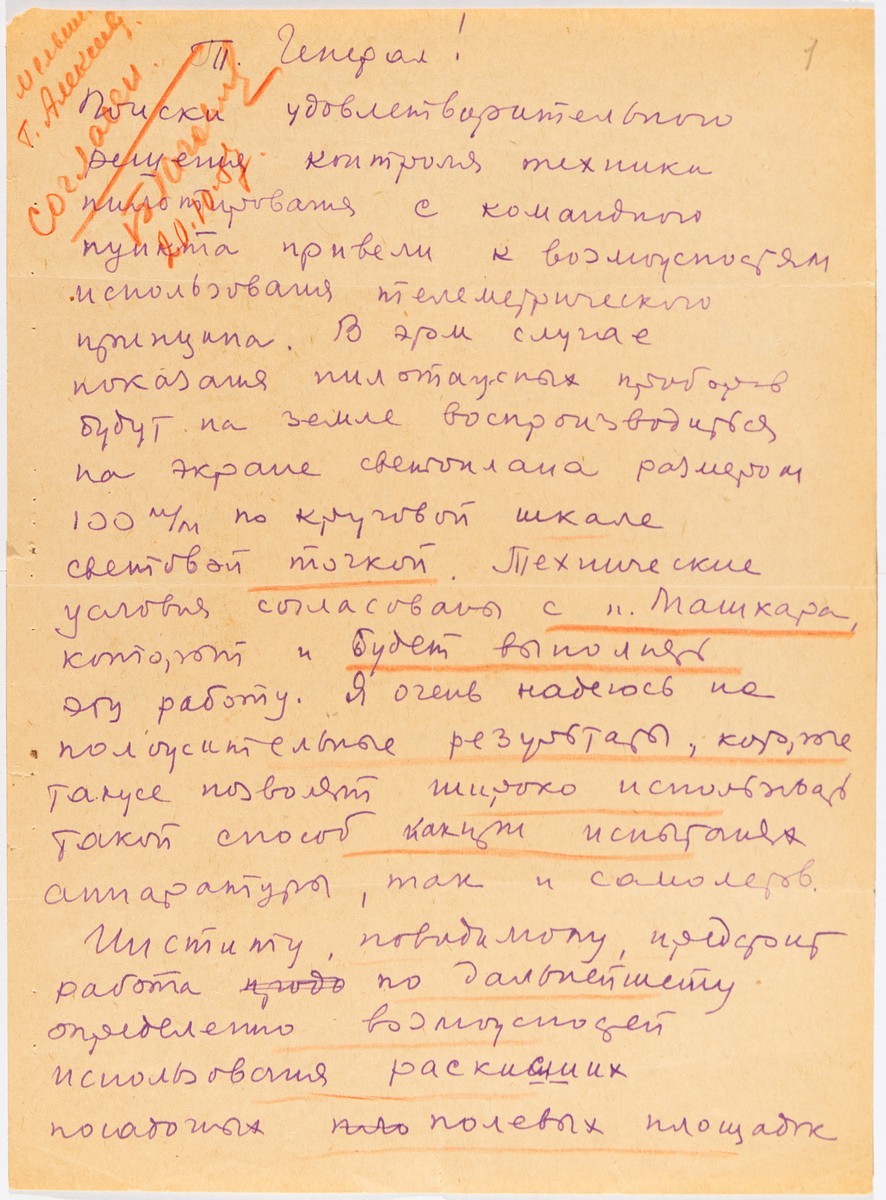 Т. Алексееву.
Согласен.
20.10.
1
Тт. Генерал!
Поиски удовлетворительного
решения контроля техники
пилотирования с командного
пункта привели к возможностям
использования телеметрического
принципа. В этом случае
показания пилотажных приборов
будут на земле воспроизводиться
на экране светоплана размером
100 м/м по круговой шкале
световой точкой. Технические
условия согласованы с п. Машкара,
который и будет выполнять
эту работу. Я очень надеюсь на
положительные результаты, которые
также позволят широко использовать
такой способ как при испытаниях
аппаратуры, так и самолетов.
Институту, повидимому, предстоит
работа по дальнейшему
определению возможностей
использования раскисших
посадочных полевых площадок